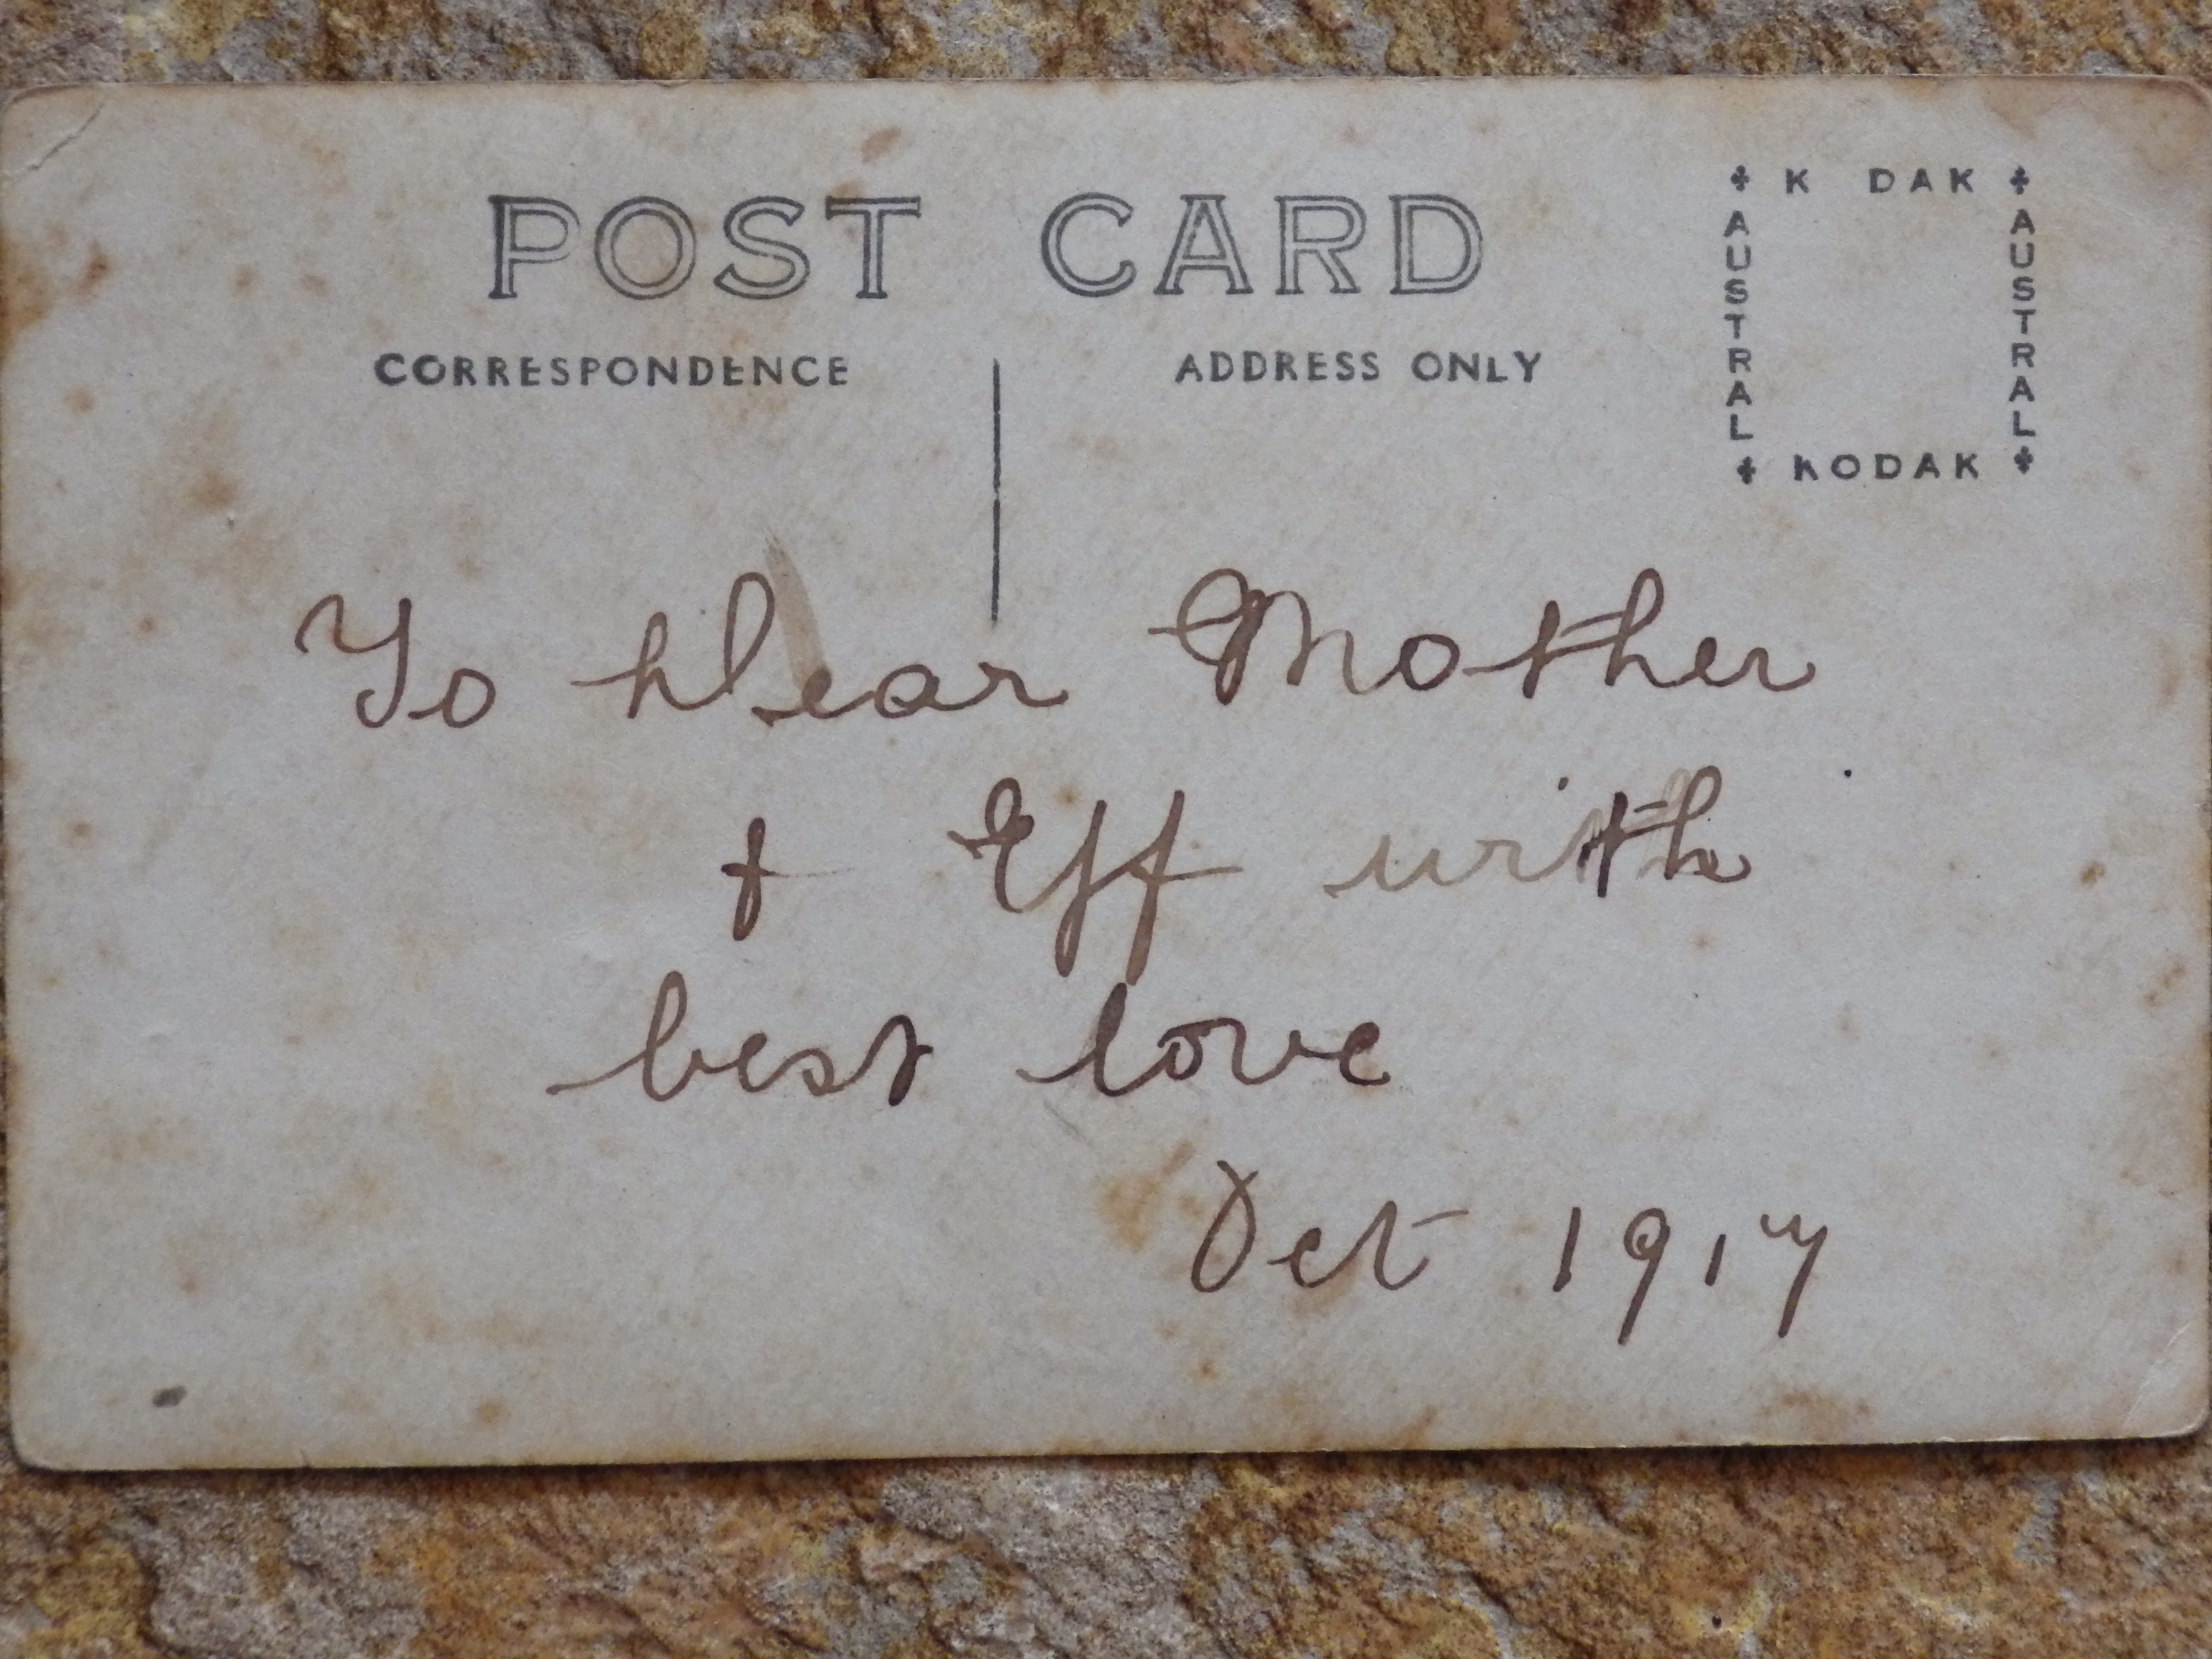 POST CARD
CORRESPONDENCE
ADDRESS ONLY
K DAK
AUSTRAL
AUSTRAL
KODAK
To Dear Mother
+ Eff with
best love
Oct 1917